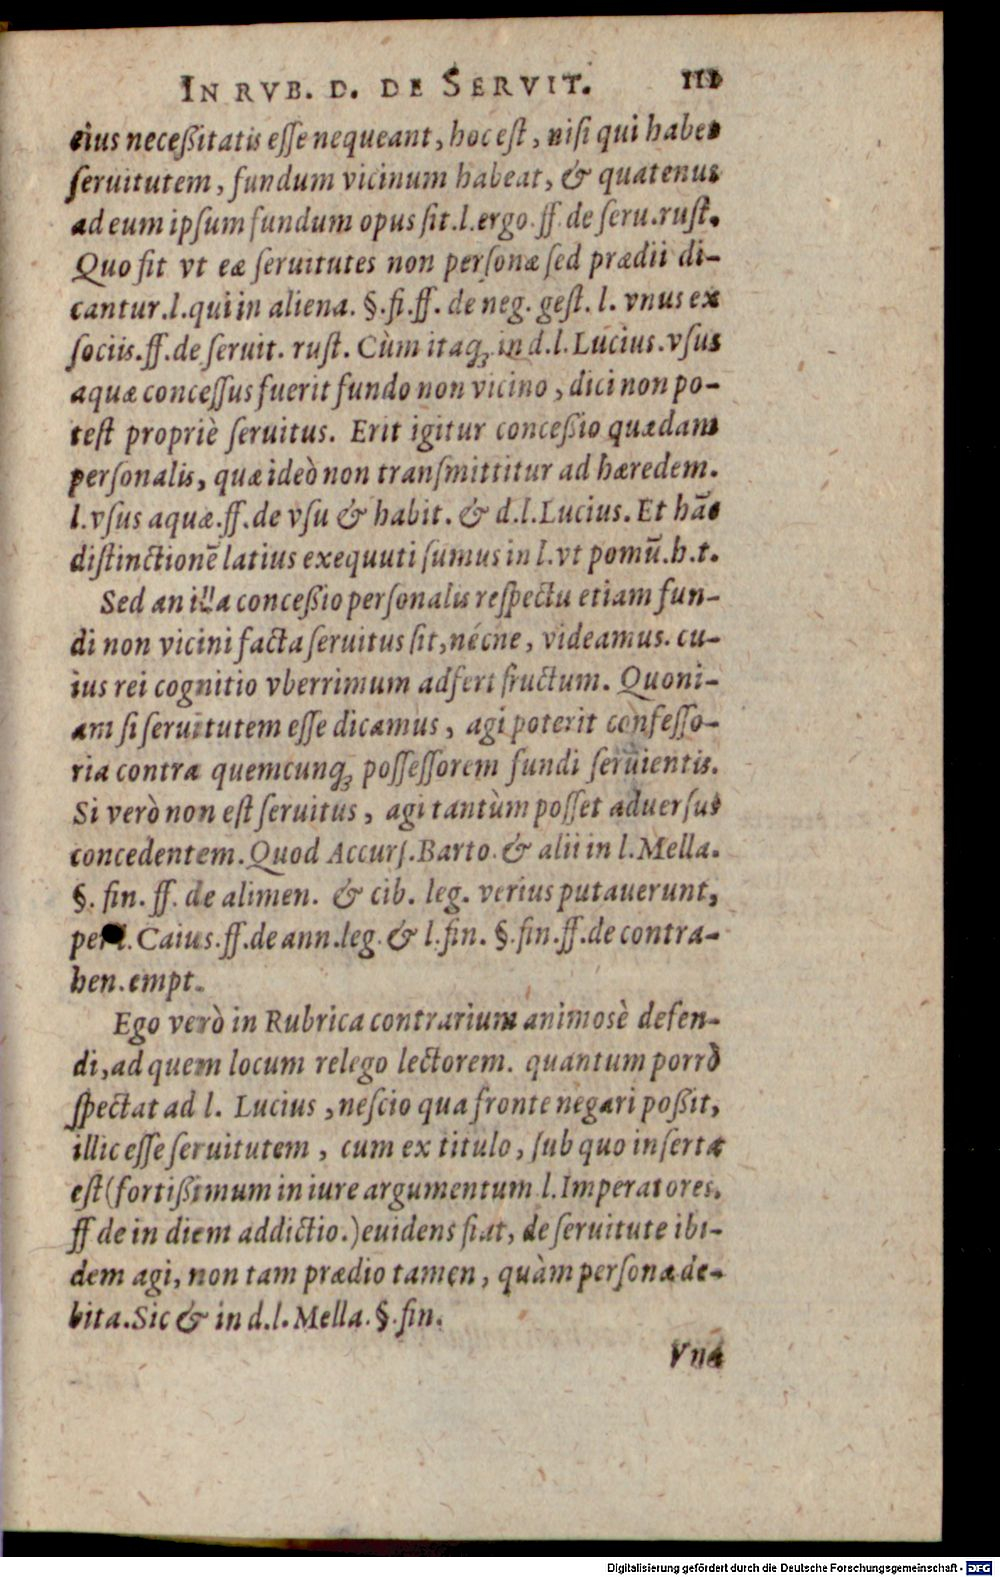 IN RVB. D. DE SERVIT. III
eius neceßitatis esse nequeant, hoc est, nisi qui habet
seruitutem, fundum vicinum habeat, & quatenus
ad eum ipsum fundum opus sit. l. ergo. ff. de seru. rust.
Quo fit vt eæ seruitutes non personæ sed prædii di-
cantur. l. qui in aliena. §. fi. ff. de neg. gest. l. vnus ex
sociis. ff. de seruit. rust. Cùm itaq; in d. l. Lucius. vsus
aquæ concessus fuerit fundo non vicino, dici non po-
test propriè seruitus. Erit igitur conceßio quædam
personalis, quæ ideò non transmittitur ad hæredem.
l. vsus aquæ. ff. de vsu & habit. & d. l. Lucius. Et hāc
distinctionē latius exequuti sumus in l. vt pomū. h. t.
Sed an illa conceßio personalis respectu etiam fun-
di non vicini facta seruitus sit, nécne, videamus. cu-
ius rei cognitio vberrimum adfert fructum. Quoni-
am si seruitutem esse dicamus, agi poterit confesso-
ria contra quemcunq; possessorem fundi seruientis.
Si verò non est seruitus, agi tantùm posset aduersus
concedentem. Quod Accurs. Barto. & alii in l. Mella.
§. fin. ff. de alimen. & cib. leg. verius putauerunt,
per l. Caius. ff. de ann. leg. & l. fin. §. fin. ff. de contra-
hen. empt.
Ego verò in Rubrica contrarium animosè defen-
di, ad quem locum relego lectorem. quantum porrò
spectat ad l. Lucius, nescio qua fronte negari poßit,
illic esse seruitutem, cum ex titulo, sub quo inserta
est (fortißimum in iure argumentum l. Imperatores.
ff de in diem addictio.) euidens fiat, de seruitute ibi-
dem agi, non tam prædio tamen, quàm personæ de-
bita. Sic & in d. l. Mella. §. fin.
Vna
Digitalisierung gefördert durch die Deutsche Forschungsgemeinschaft - DFG